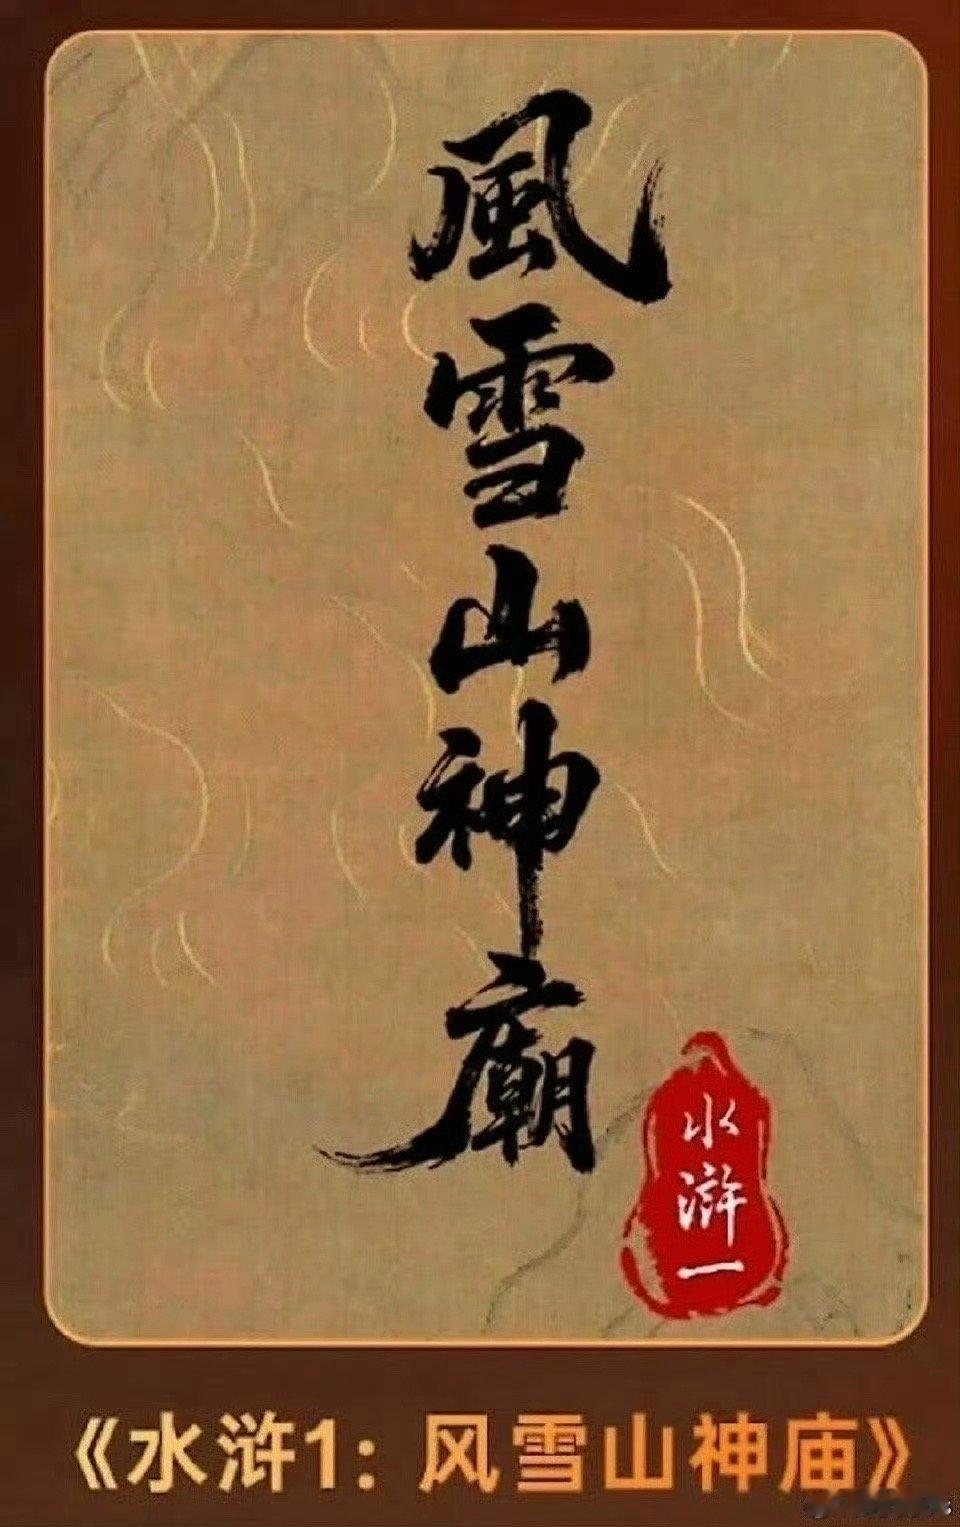 風雪山神廟
水滸一
《水浒1：风雪山神庙》